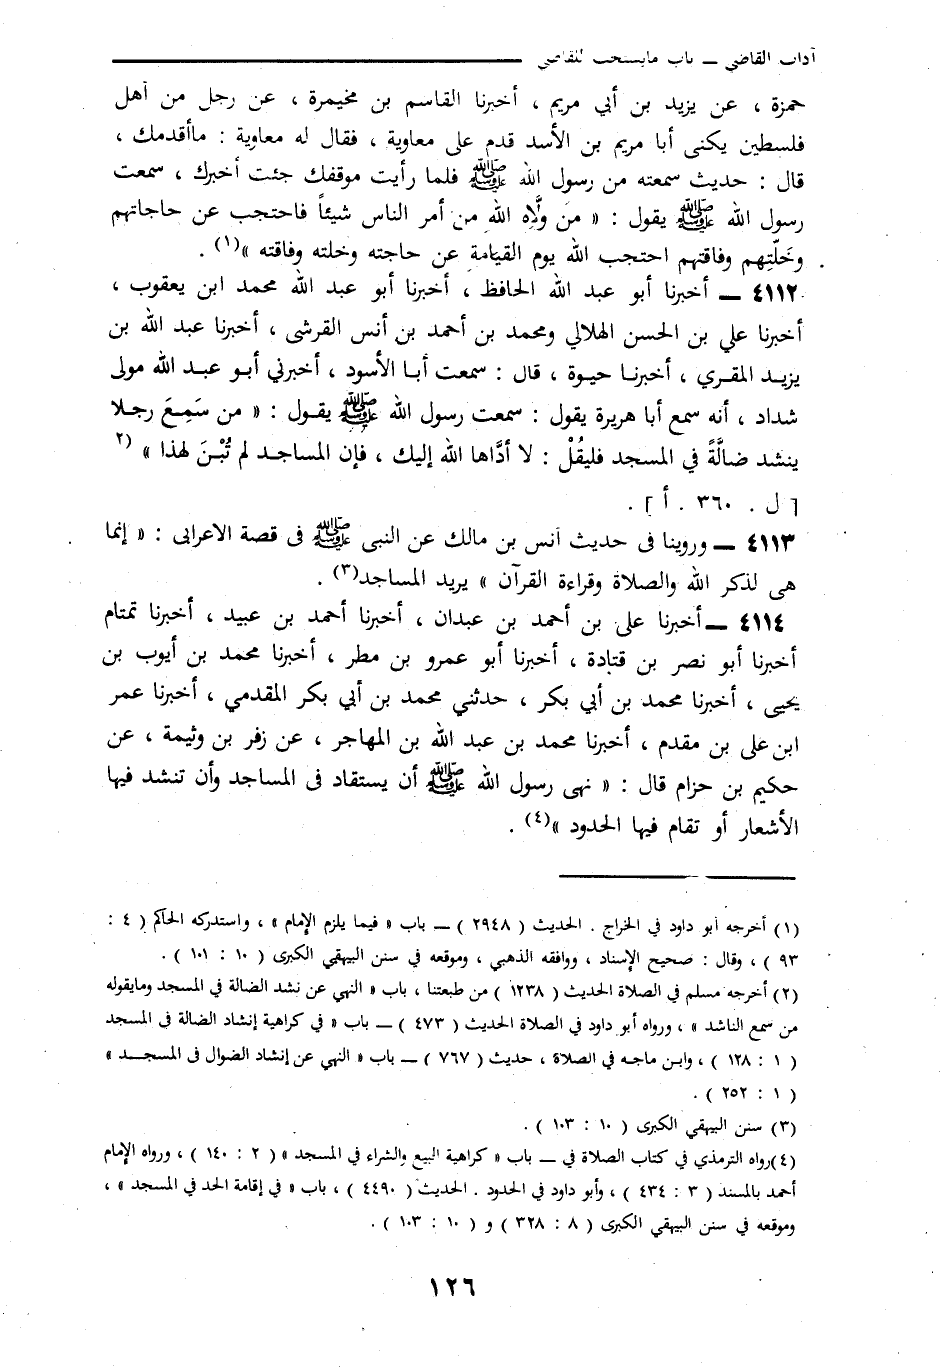 آداب القاضي ــ باب مايستحب للقاضي
حمزة ، عن يزيد بن أبي مريم ، أخبرنا القاسم بن مخيمرة ، عن رجل من أهل
فلسطين يكنى أبا مريم بن الأسد قدم على معاوية ، فقال له معاوية : ماأقدمك ،
قال : حديث سمعته من رسول الله ﷺ فلما رأيت موقفك جئت أخبرك ، سمعت
رسول الله ﷺ يقول : « من ولَّاه الله من أمر الناس شيئاً فاحتجب عن حاجاتهم
وخَلَّتِهم وفاقتهم احتجب الله يوم القيامة عن حاجته وخلته وفاقته »(١) .
٤١١٢ ــ أخبرنا أبو عبد الله الحافظ ، أخبرنا أبو عبد الله محمد ابن يعقوب ،
أخبرنا علي بن الحسن الهلالي ومحمد بن أحمد بن أنس القرشى ، أخبرنا عبد الله بن
يزيد المقري ، أخبرنا حيوة ، قال : سمعت أبا الأسود ، أخبرني أبو عبد الله مولى
شداد ، أنه سمع أبا هريرة يقول : سمعت رسول الله ﷺ يقول : « من سَمِعَ رجلا
ينشد ضالَّةً في المسجد فليقُلْ : لا أدَّاها الله إليك ، فإن المساجد لم تُبْنَ لهذا » (٢
[ ل . ٣٦٠ . أ ] .
٤١١٣ ــ وروينا فى حديث أنس بن مالك عن النبى ﷺ فى قصة الاعرابى : « إنما
هى لذكر الله والصلاة وقراءة القرآن » يريد المساجد(٣) .
٤١١٤ ــ أخبرنا على بن أحمد بن عبدان ، أخبرنا أحمد بن عبيد ، أخبرنا تمتام
أخبرنا أبو نصر بن قتادة ، أخبرنا أبو عمرو بن مطر ، أخبرنا محمد بن أيوب بن
يحيى ، أخبرنا محمد بن أبي بكر ، حدثني محمد بن أبي بكر المقدمي ، أخبرنا عمر
ابن على بن مقدم ، أخبرنا محمد بن عبد الله بن المهاجر ، عن زفر بن وثيمة ، عن
حكيم بن حزام قال : « نهى رسول الله ﷺ أن يستقاد فى المساجد وأن تنشد فيها
الأشعار أو تقام فيها الحدود »(٤) .
(١) أخرجه أبو داود في الخراج . الحديث ( ٢٩٤٨ ) ــ باب « فيما يلزم الإمام » ، واستدركه الحاكم ( ٤ :
٩٣ ) ، وقال : صحيح الإسناد ، ووافقه الذهبي ، وموقعه في سنن البيهقي الكبرى ( ١٠ : ١٠١ ) .
(٢) أخرجه مسلم في الصلاة الحديث ( ١٢٣٨ ) من طبعتنا ، باب « النهي عن نشد الضالة في المسجد ومايقوله
من سمع الناشد » ، ورواه أبو داود في الصلاة الحديث ( ٤٧٣ ) ــ باب « في كراهية إنشاد الضالة فى المسجد
( ١ : ١٢٨ ) ، وابن ماجه في الصلاة ، حديث ( ٧٦٧ ) ــ باب « النهي عن إنشاد الضوال فى المسجد »
( ١ : ٢٥٢ ) .
(٣) سنن البيهقي الكبرى ( ١٠ : ١٠٣ ) .
(٤)رواه الترمذي في كتاب الصلاة في ــ باب « كراهية البيع والشراء في المسجد » ( ٢ : ١٤٠ ) ، ورواه الإمام
أحمد بالمسند ( ٣ : ٤٣٤ ) ، وأبو داود في الحدود . الحديث ( ٤٤٩٠ ) ، باب « في إقامة الحد في المسجد » ،
وموقعه في سنن البيهقي الكبرى ( ٨ : ٣٢٨ ) و ( ١٠ : ١٠٣ ) .
١٢٦